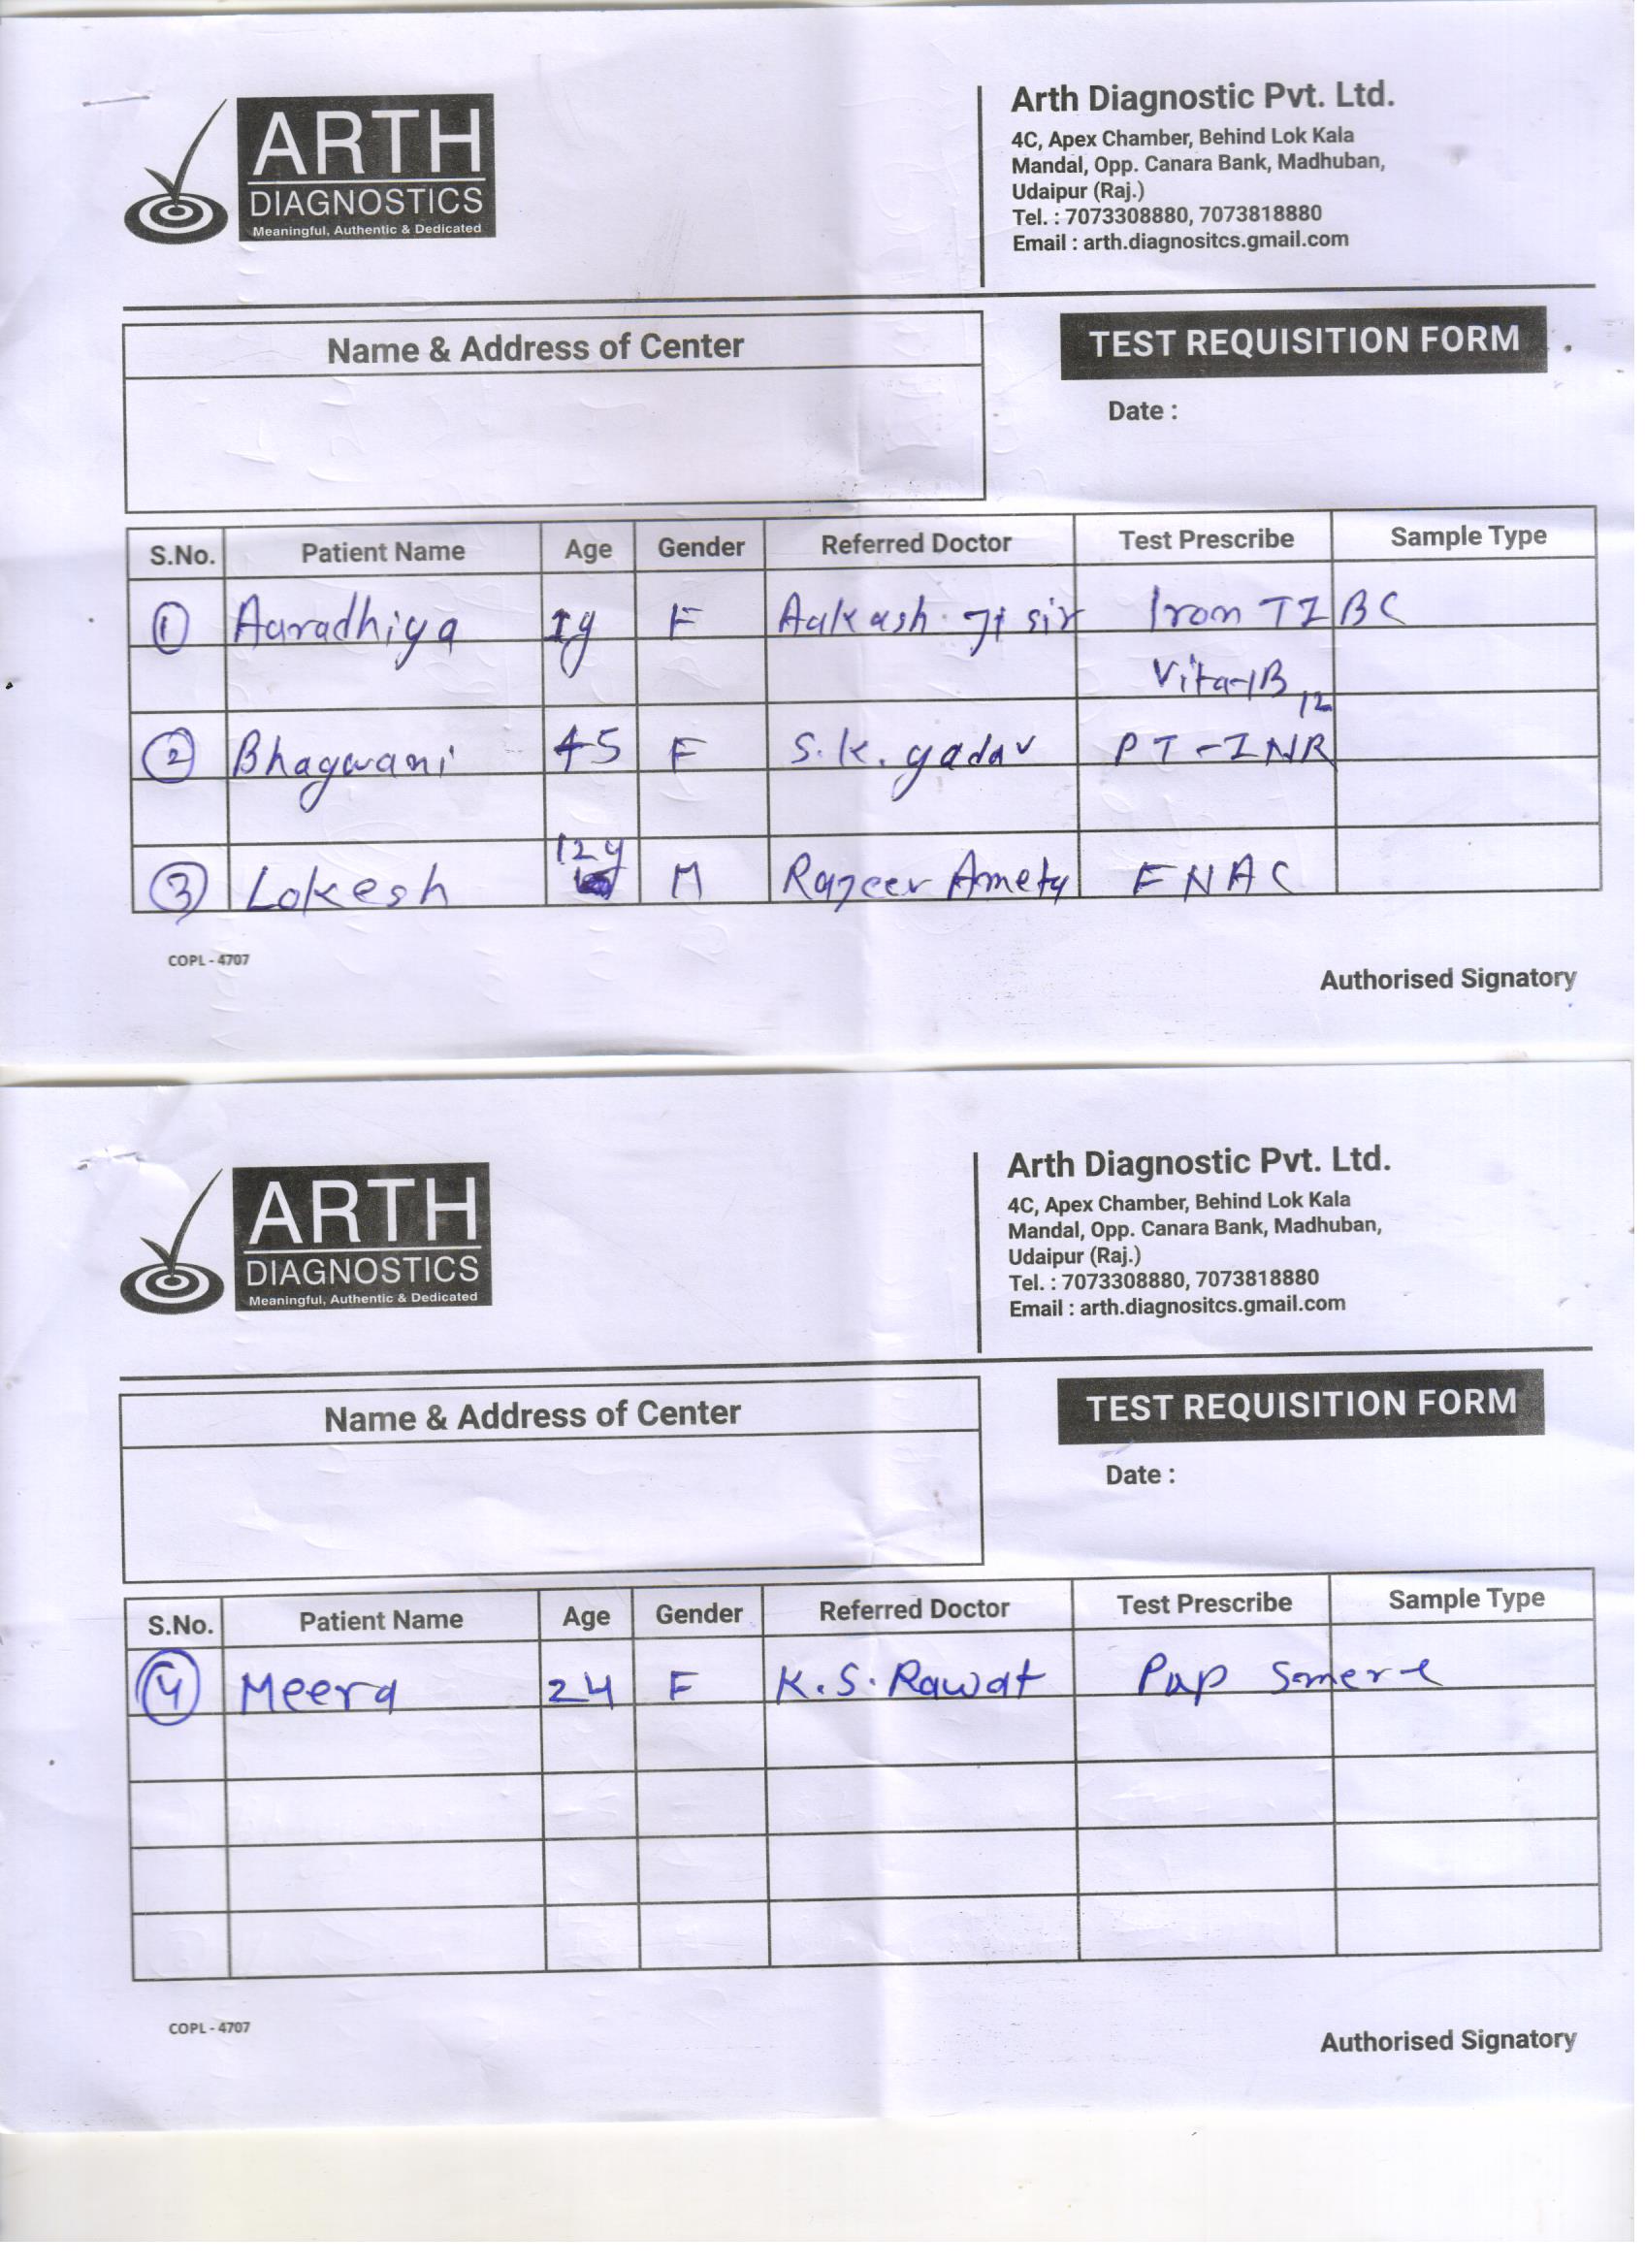 ARTH
DIAGNOSTICS
Meaningful, Authentic & Dedicated
Arth Diagnostic Pvt. Ltd.
4C, Apex Chamber, Behind Lok Kala
Mandal, Opp. Canara Bank, Madhuban,
Udaipur (Raj.)
Tel. : 7073308880, 7073818880
Email : arth.diagnositcs.gmail.com
Name & Address of Center
TEST REQUISITION FORM
Date :
S.No. Patient Name Age Gender Referred Doctor Test Prescribe Sample Type
1 Aaradhiya 1y F Aakash sir Iron TIBC
Vita-B12
2 Bhagwani 45 F S.K. yadav PT-INR
3 Lokesh 12y M Rajeev Ameta FNAC
COPL - 4707
Authorised Signatory
ARTH
DIAGNOSTICS
Meaningful, Authentic & Dedicated
Arth Diagnostic Pvt. Ltd.
4C, Apex Chamber, Behind Lok Kala
Mandal, Opp. Canara Bank, Madhuban,
Udaipur (Raj.)
Tel. : 7073308880, 7073818880
Email : arth.diagnositcs.gmail.com
Name & Address of Center
TEST REQUISITION FORM
Date :
S.No. Patient Name Age Gender Referred Doctor Test Prescribe Sample Type
4 Meera 24 F K.S. Rawat Pap Smere
COPL - 4707
Authorised Signatory